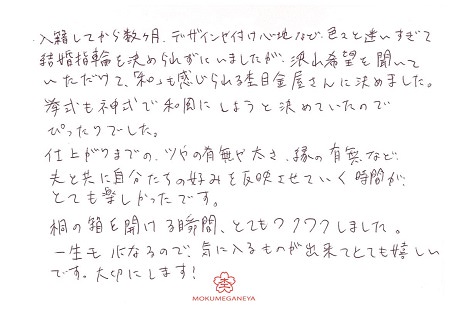 入籍してから数ヶ月、デザインや付け心地など、色々と迷いすぎて
結婚指輪を決められずにいましたが、沢山希望を聞いて
いただけて、「和」も感じられる杢目金屋さんに決めました。
挙式も神式で和風にしようと決めていたので
ぴったりでした。
仕上がりまでの、ツヤの有無や太さ、縁の有無など、
夫と共に自分たちの好みを反映させていく時間が、
とても楽しかったです。
桐の箱を開ける瞬間、とてもワクワクしました。
一生モノになるので、気に入るものが出来てとても嬉しい
です。大切にします!
MOKUMEGANEYA